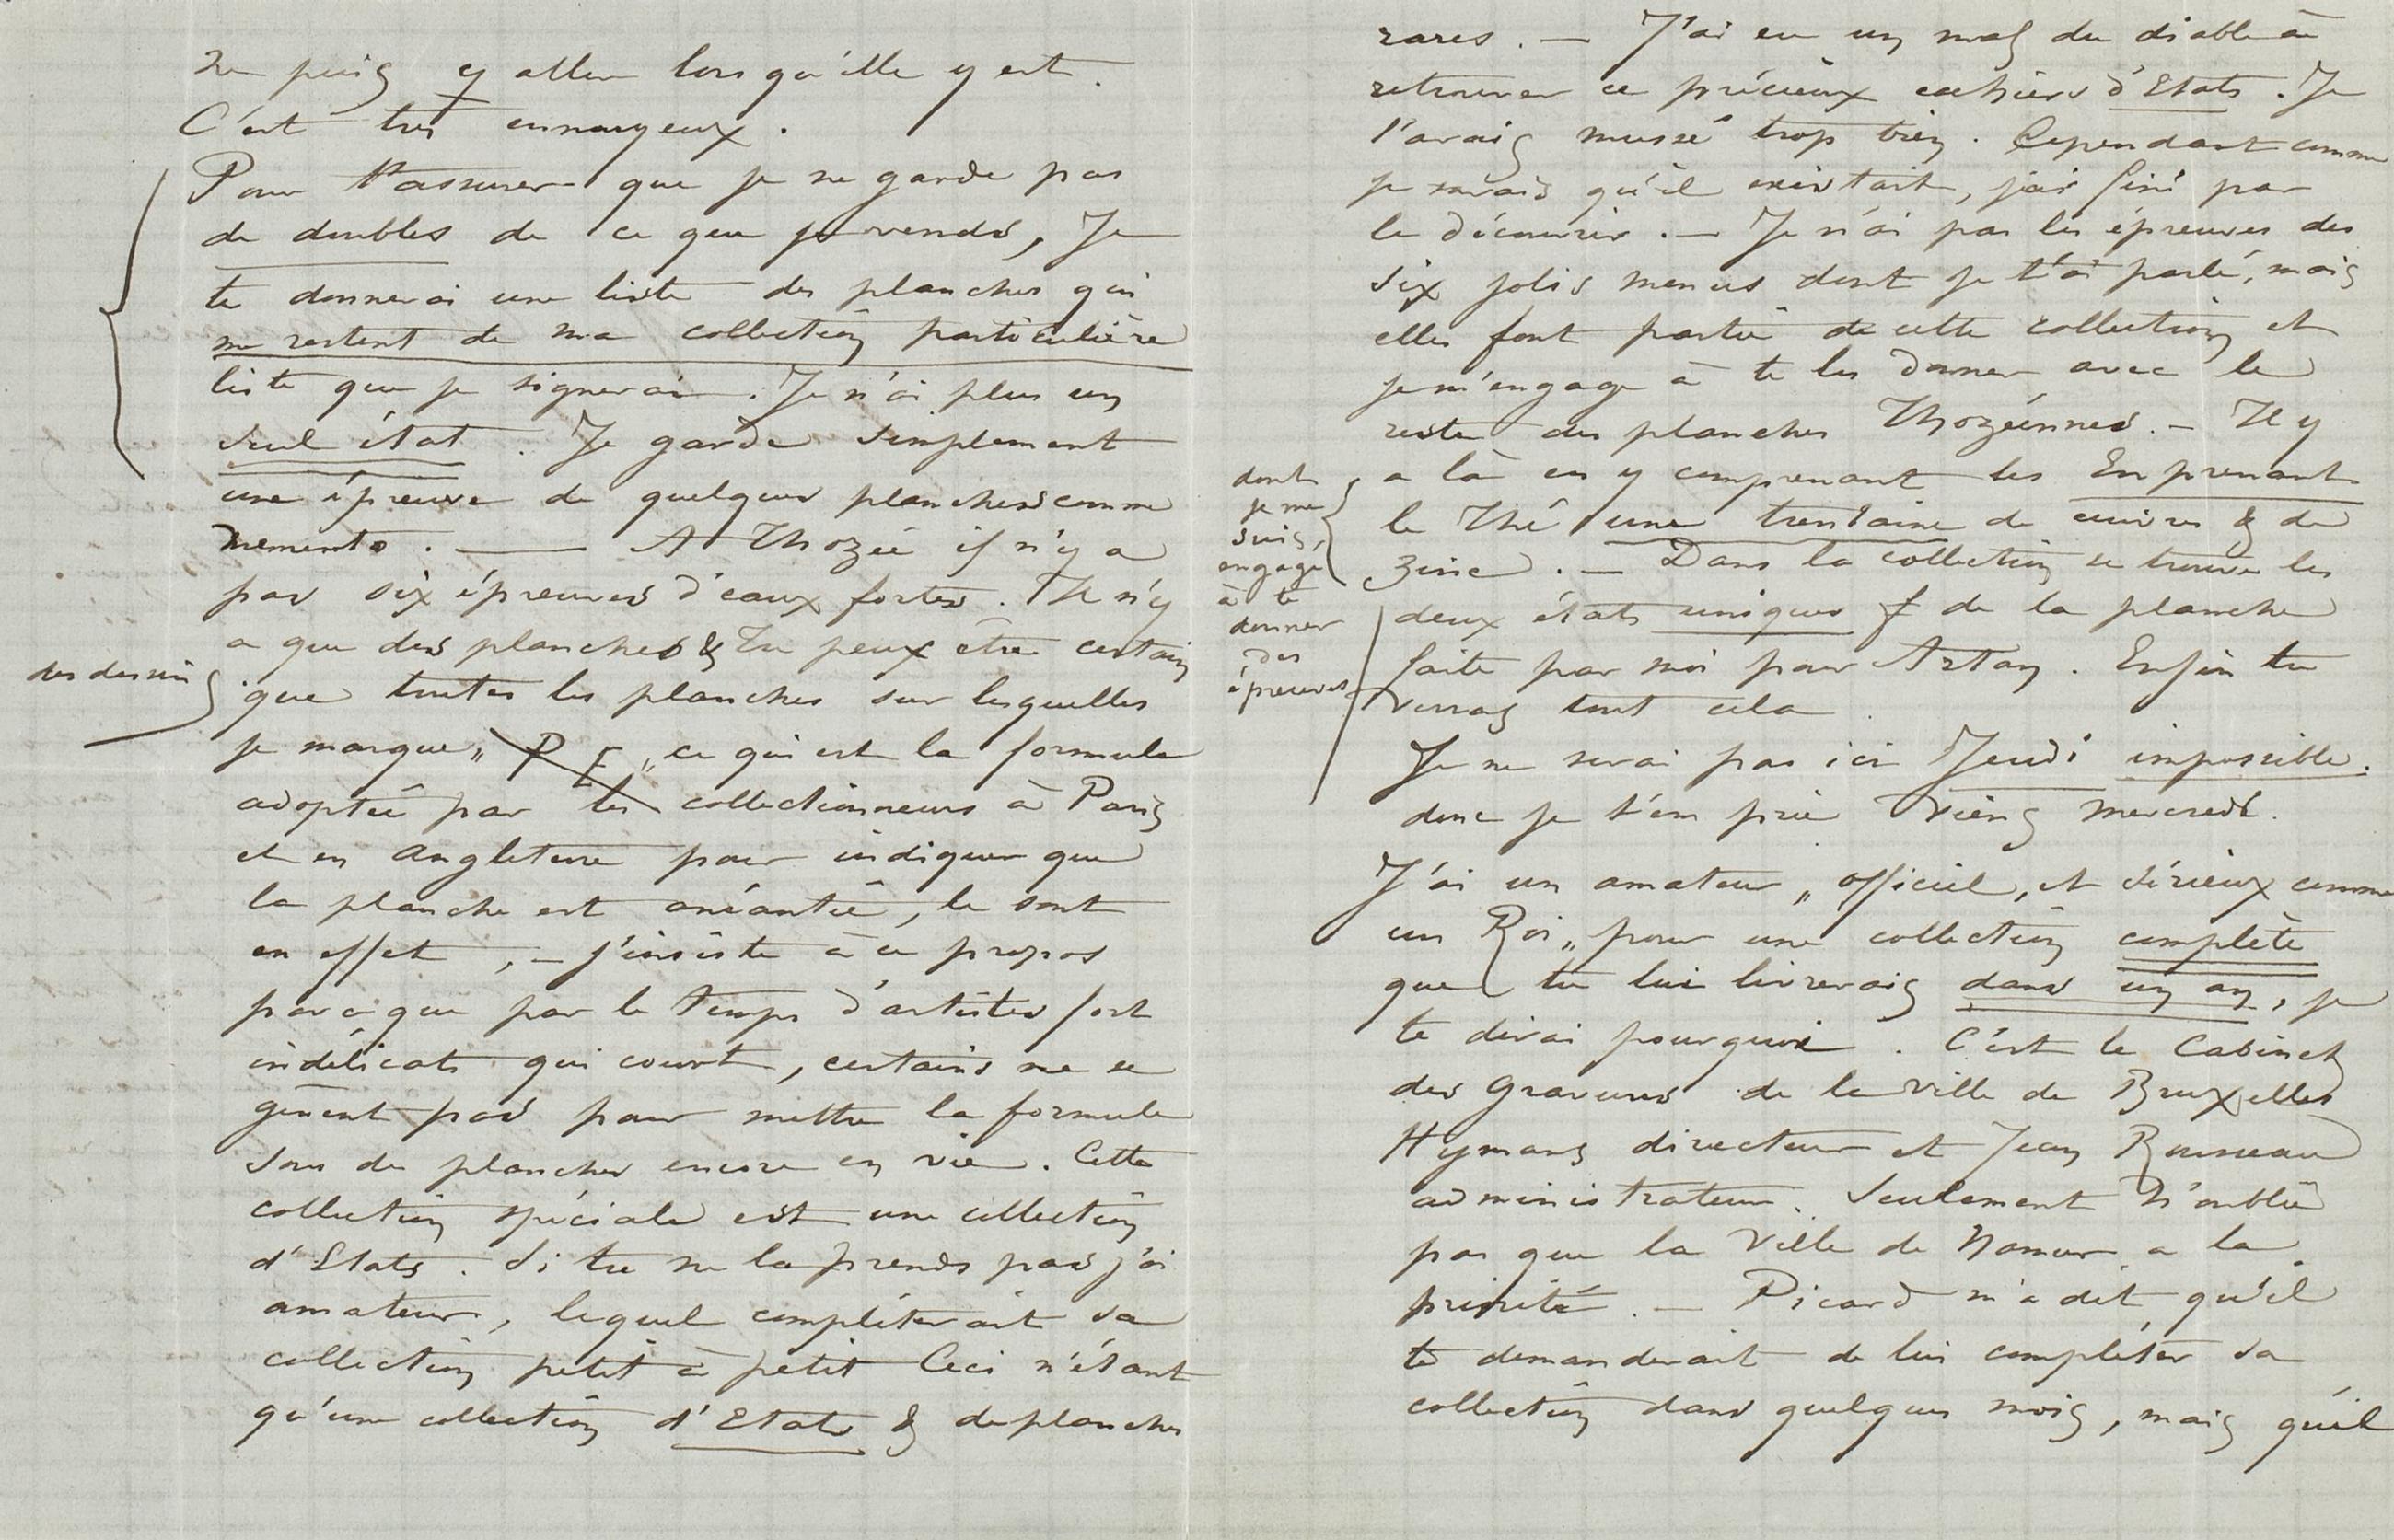 ne puis y aller lorsqu'elle y est.
C'est très ennuyeux.
Pour t'assurer que je ne garde pas
de doubles de ce que je vends, Je
te donnerai une liste des planches qui
me restent de ma collection particulière
liste que je signerai. Je n'ai plus un
seul état. Je garde simplement
une épreuve de quelques planches comme
memento. — A Thozée il n'y a
pas six épreuves d'eaux fortes. Il n'y
a que des planches & Tu peux être certain
des dessins
que toutes les planches sur lesquelles
je marque „ P F „ ce qui est la formule
adoptée par les collectionneurs à Paris
et en Angleterre pour indiquer que
la planche est anéantie, le sont
en effet, – j'insiste à ce propos
parceque par le temps d'artistes fort
indélicats qui court, certains ne se
gênent pas pour mettre la formule
sous des planches encore en vie. Cette
collection spéciale est une collection
d'Etats. Si tu ne la prends pas j'ai
amateur, lequel complèterait sa
collection petit à petit Ceci n'étant
qu'une collection d'Etats & de planches
rares. — J'ai eu un mal du diable à
retrouver ce précieux cahiers d'Etats. Je
l'avais mussé trop bien. Cependant comme
je savais qu'il existait, j'ai fini par
le découvrir. — Je n'ai pas les épreuves des
six jolis menus dont je t'ai parlé, mais
elles font partie de cette collection et
je m'engage à te les donner avec le
reste des planches Thozéennes. – Il y
a là en y comprenant les En prenant
le Thé une trentaine de cuivres & de
zinc. — Dans la collection se trouve les
dont
je me
suis
engagé
à te
donner
des
épreuves
deux états uniques de la planche
faite par moi pour Artan. Enfin tu
verras tout cela
Je ne serai pas ici Jeudi impossible.
donc je t'en prie viens mercredi.
J'ai un amateur „ officiel, et sérieux comme
un Roi „ pour une collection complète
que tu lui livrerais dans un an, je
te dirai pourquoi. C'est le Cabinet
des Gravures de la ville de Bruxelles
Hymans directeur et Jean Rousseau
administrateur. Seulement n'oublie
pas que la Ville de Namur a la
priorité. — Picard m'a dit qu'il
te demanderait de lui compléter sa
collection dans quelques mois, mais qu'il